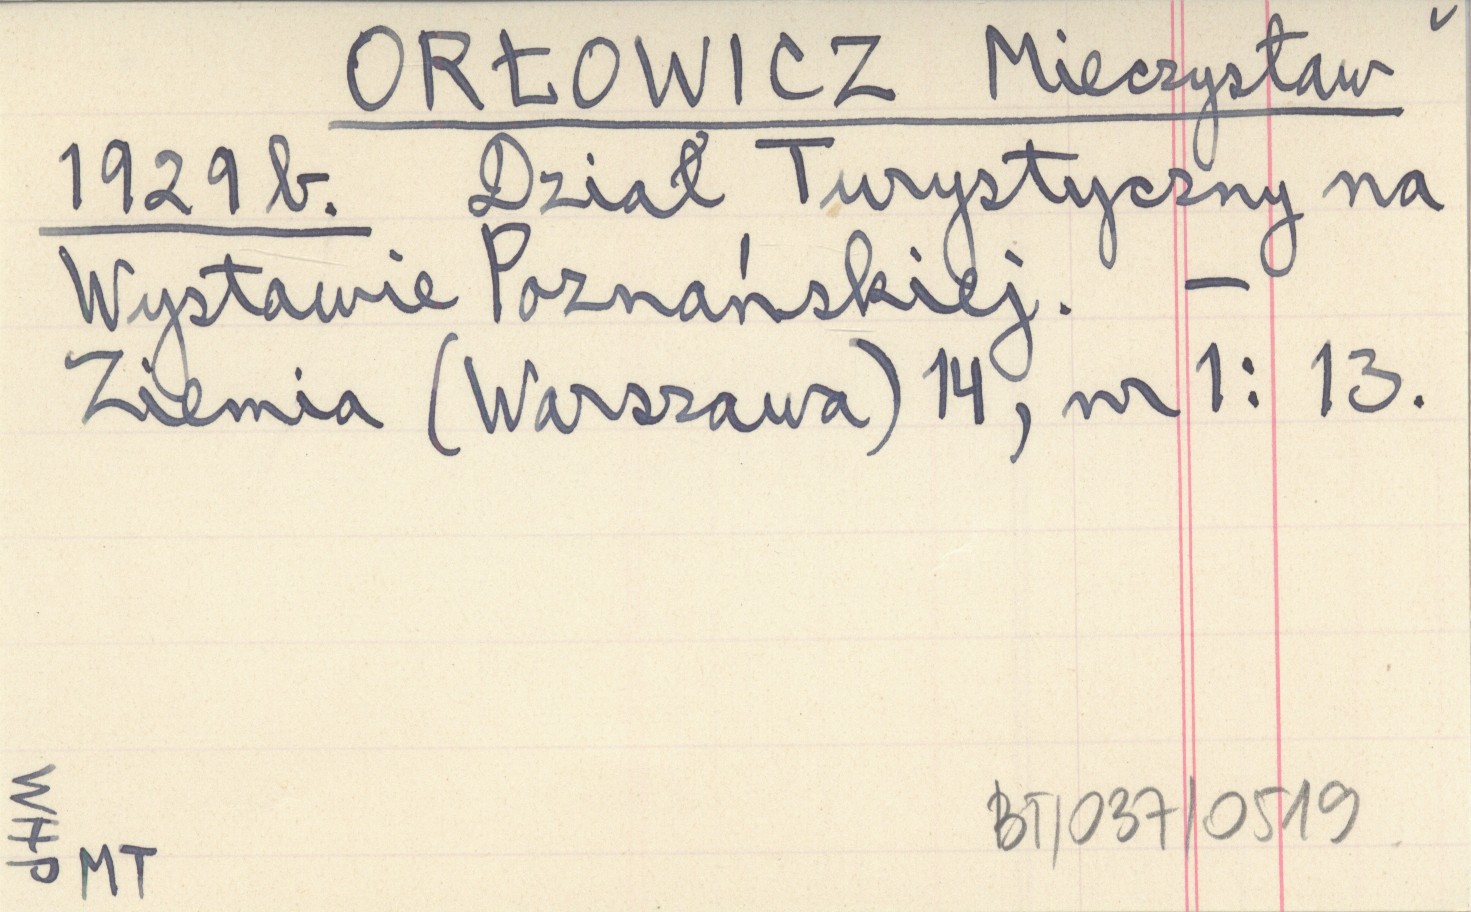 ORŁOWICZ Mieczysław
1929 b. Dział Turystyczny na
Wystawie Poznańskiej. —
Ziemia (Warszawa) 14, nr 1: 13.
WHP
MT
BT/037/0519